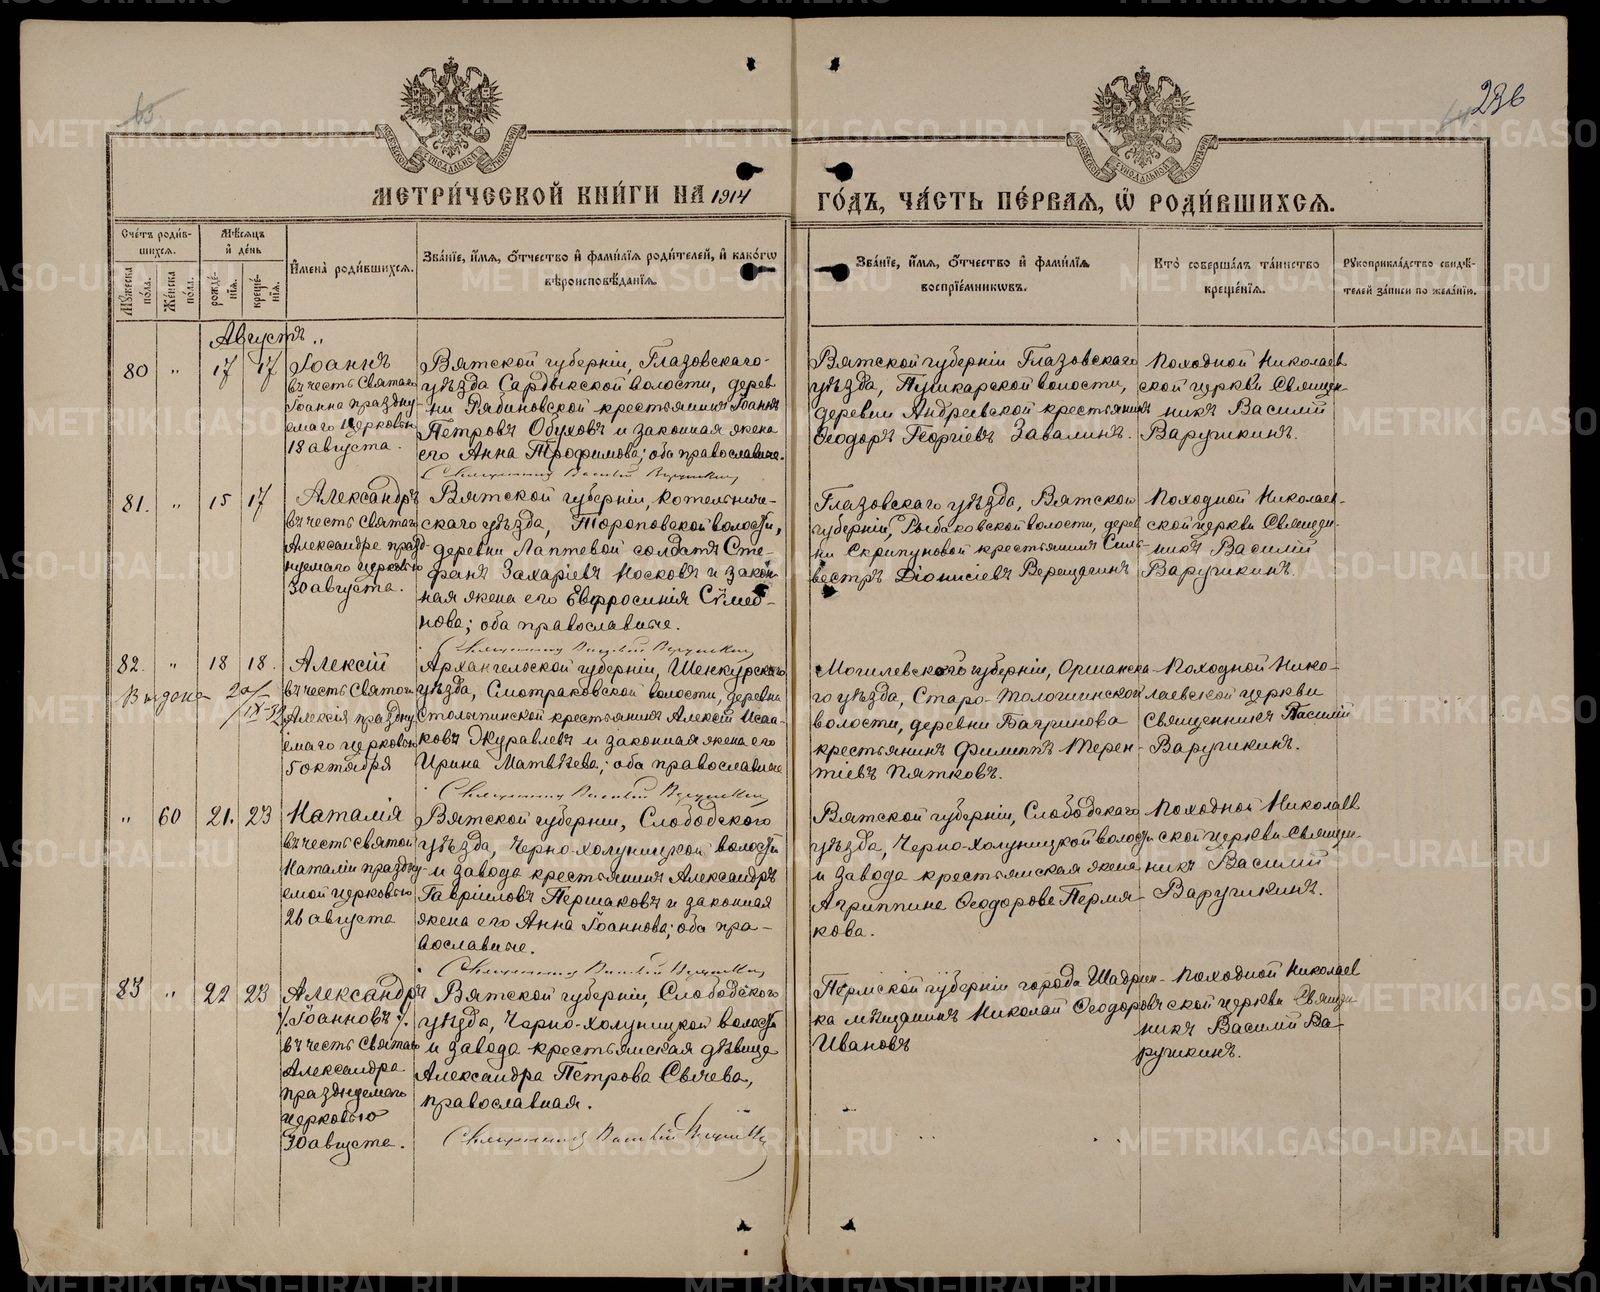 65
64
236
МЕТРИ́ЧЕСКОЙ КНИ́ГИ НА 1914 ГО́ДЪ, ЧА́СТЬ ПЕ́РВАЯ, Ѽ РОДИ́ВШИХСЯ.
Сче́тъ роди́в-
шихся.
Мѣ́сяцъ
и҆ де́нь
Мꙋ́жеска по́ла.
Же́нска по́ла.
рожде́-
нїѧ.
креще́-
нїѧ.
И҆мена̀ роди́вшихся.
Зва́нїе, и҆́мя, ѻ҆́тчество и҆ фами́лїя роди́телей, и҆ како́гѡ
вѣроисповѣ́данїя.
Зва́нїе, и҆́мя, ѻ҆́тчество и҆ фами́лїя
воспрїе́мникѡвъ.
Кто̀ соверша́лъ та́инство
креще́нїя.
Рꙋкоприкла́дство свидѣ́-
телей за́писи по жела́нїю.
Августъ „
80 „ 17 17
Іоаннъ
въ честь Святаго
Іоанна праздну-
емаго церковью
18 августа.
Вятской губерніи, Глазовскаго
уѣзда Сардыкской волости, дерев
ни Рябиновской крестьянинъ Іоаннъ
Петровъ Обуховъ и законная жена
его Анна Трофимова; оба православные.
Священникъ Василій Варушкинъ
Вятской губерніи Глазовскаго
уѣзда, Пушкарской волости,
деревни Андреевской крестьянинъ
Ѳеодоръ Георгіевъ Завалинъ.
Походной Николаев
ской церкви Священ-
никъ Василій
Варушкинъ.
81. „ 15 17
Александръ
въ честь Святаго
Александра празд-
нуемаго церковью
30 августа.
Вятской губерніи, Котельниче-
скаго уѣзда, Тороповской волости,
деревни Лаптевой солдатъ Сте-
фанъ Захаріевъ Носковъ и закон-
ная жена его Евфросинія Симео-
нова; оба православные.
Священникъ Василій Варушкинъ
Глазовскаго уѣзда, Вятской
губерніи, Рыбаковской волости, дерев
ни Скрипуновой крестьянинъ Силь-
вестръ Діонисіевъ Верещагинъ
Походной Николаев-
ской церкви Священ-
никъ Василій
Варушкинъ.
82. „ 18 18.
Выдана 20/IX-32
Алексій
въ честь Святого
Алексія праздну
емаго церковью
5 октября
Архангельской губерніи, Шенкурскаго
уѣзда, Смотраковской волости, деревни
Столыпинской крестьянинъ Алексѣй Исаа-
ковъ Журавлевъ и законная жена его
Ирина Матвѣева; оба православные
Священникъ Василій Варушкинъ
Могилевской губерніи, Оршанска-
го уѣзда, Старо-Толочинской
волости, деревни Багринова
крестьянинъ Филиппъ Терен-
тіевъ Пятковъ.
Походной Нико-
лаевской церкви
Священникъ Василій
Варушкинъ.
„ 60 21. 23
Наталія
въ честь святой
Наталіи праздну-
емой церковью
26 августа
Вятской губерніи, Слободского
уѣзда, Черно-Холуницкой волости
и завода крестьянинъ Александръ
Гавріиловъ Першаковъ и законная
жена его Анна Іоаннова; оба пра-
вославные.
Священникъ Василій Варушкинъ
Вятской губерніи, Слободскаго
уѣзда, Черно-Холуницкой волости
и завода крестьянская жена
Агриппина Ѳеодорова Пермя
кова.
Походной Николаев
ской церкви Священ-
никъ Василій
Варушкинъ.
83 „ 22 23
Александръ
/Іоанновъ/.
въ честь Святаго
Александра
празднуемаго
церковью
30 августа.
Вятской губерніи, Слободского
уѣзда, Черно-Холуницкой волости
и завода крестьянская дѣвица
Александра Петрова Сычева,
православная.
Священникъ Василій Варушкинъ
Пермской губерніи города Шадрин-
ка мѣщанинъ Николай Ѳеодоровъ
Ивановъ
Походной Николаев
ской церкви Священ-
никъ Василій Ва-
рушкинъ.